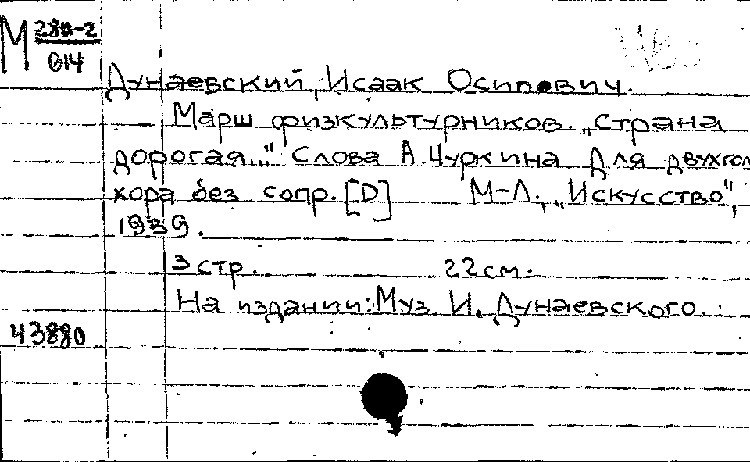 М 280-2
014
Дунаевский, Исаак Осипович.
Марш физкультурников. „Страна
дорогая..." Слова А. Чуркина Для двухгол
хора без сопр. [D] М-Л., „Искусство",
1939.
3 стр. 22 см.
На издании: Муз. И. Дунаевского.
43880